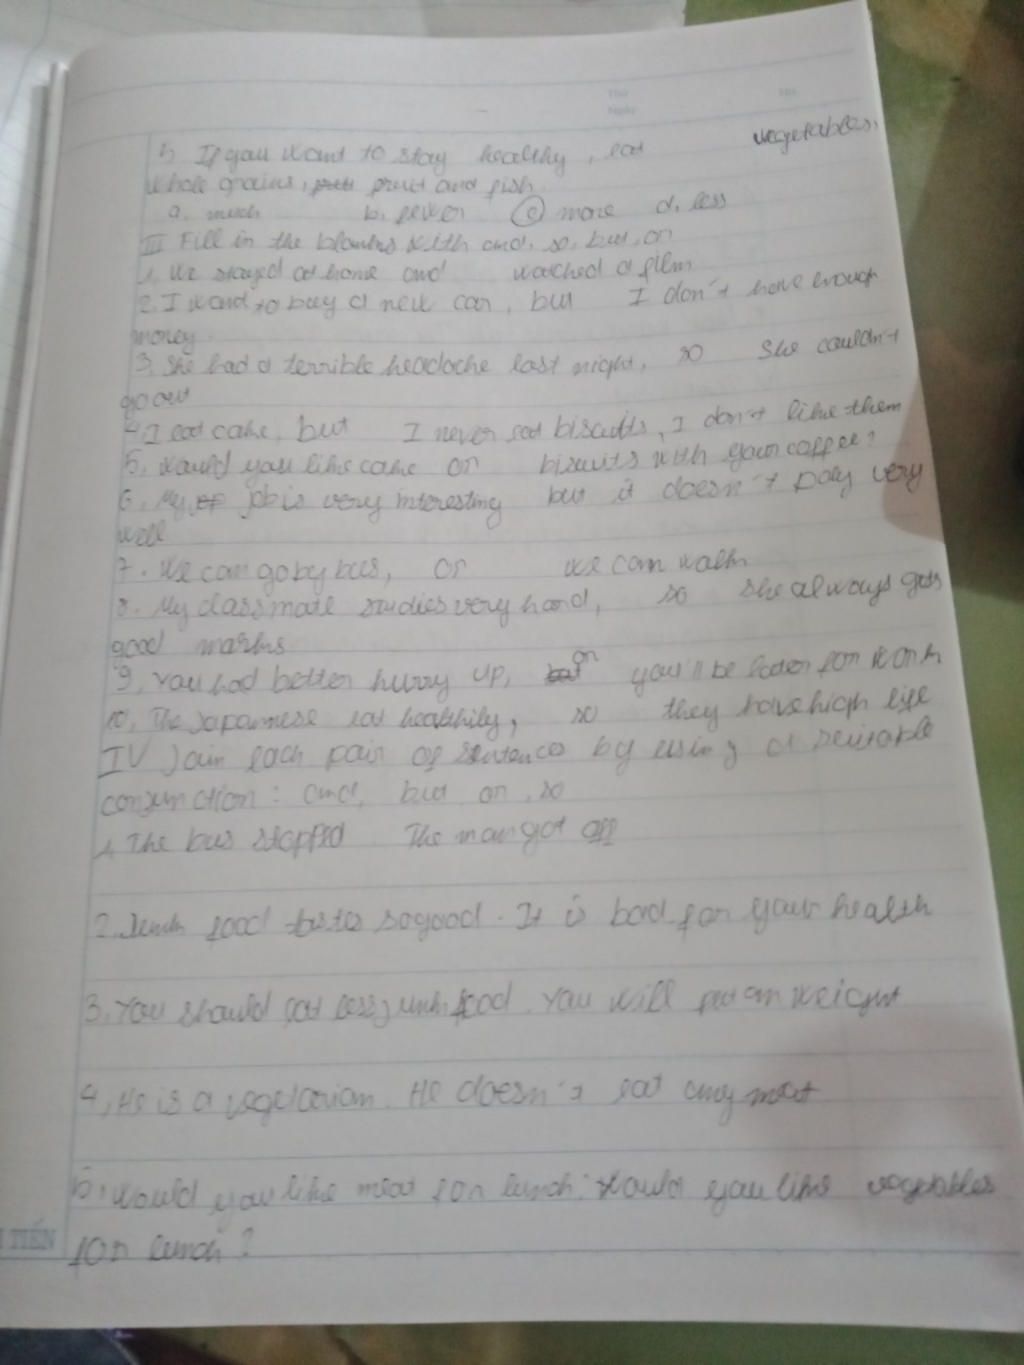 Thứ
Ngày
No.
5, If you want to stay healthy, eat vegetables,
whole grains, fruit and fish
a. much b. fewer c more d. less
III Fill in the blanks with and, so, but, or
1. We stayed at home and watched a film
2. I want to buy a new car, but I don't have enough
money.
3. She had a terrible headache last night, so she couldn't
go out
4. I eat cake, but I never eat biscuits, I don't like them
5, would you like cake or biscuits with your coffee?
6, My job is very interesting but it doesn't pay very
well
7. We can go by bus, or we can walk
8. My classmate studies very hard, so she always gets
good marks
9, You had better hurry up, or you'll be later for work
10, The Japannese eat healthily, so they have high life
IV Join each pair of sentences by using a suitable
conjunction: and, but, or, so
1. The bus stopped The man got off
2. Junk food tastes so good. It is bad for your health
3, You should eat less junk food. You will put on weight
4, He is a vegetarian. He doesn't eat any meat
5, Would you like meat for lunch? Would you like vegetables
for lunch?
TIẾN